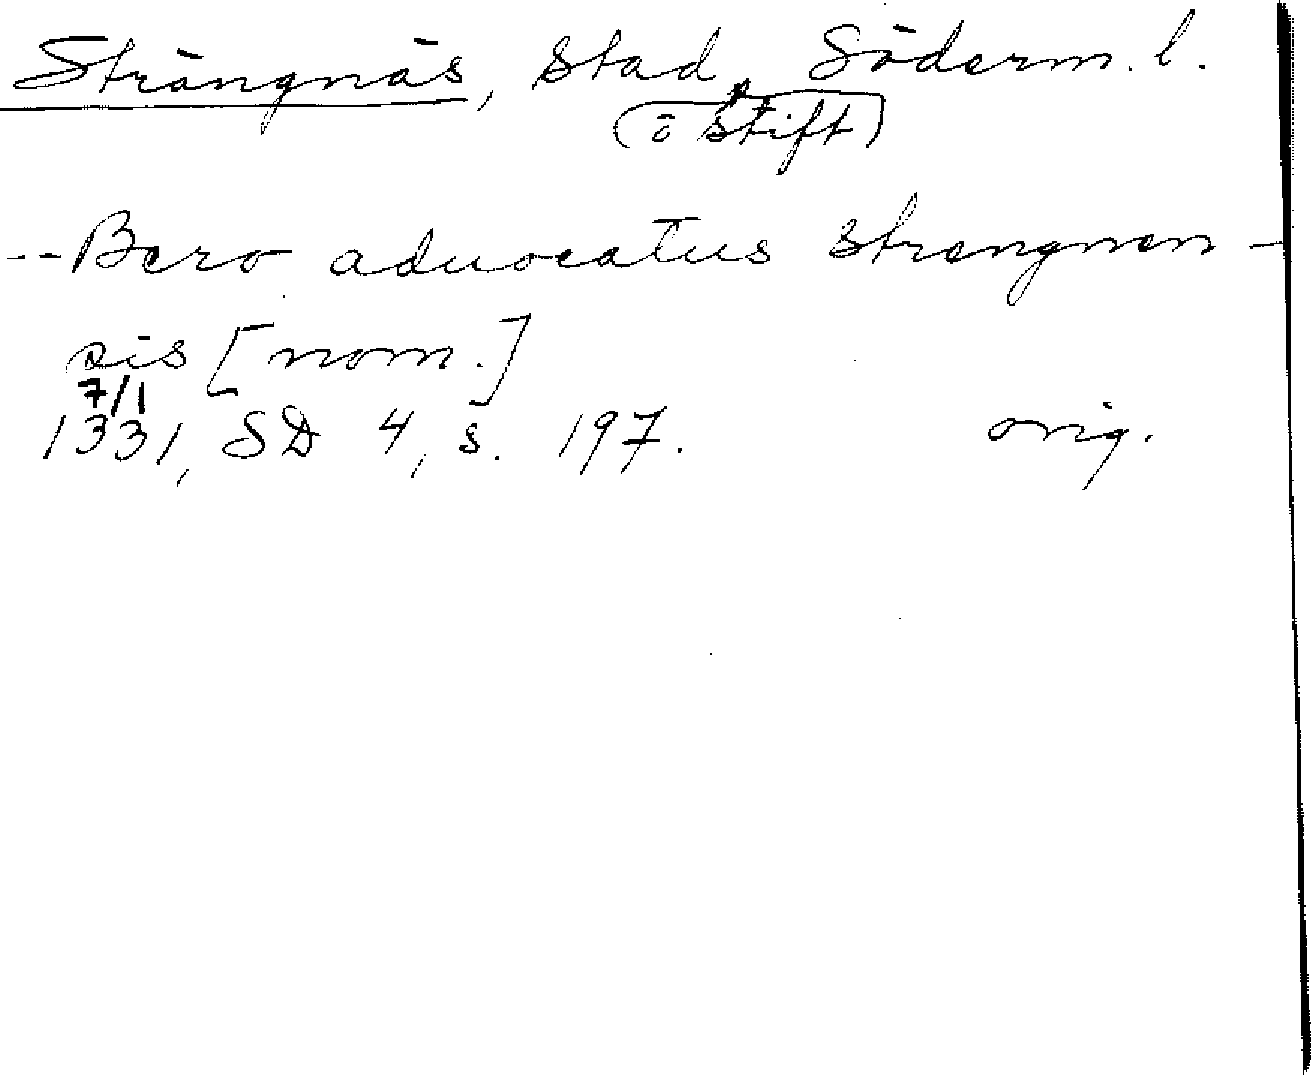 Strängnäs, stad, Söderm. l.
(o stift)
-- Bero aduocatus strengnen-
sis [nom.]
7/1
1331, SD 4, s. 197. orig.